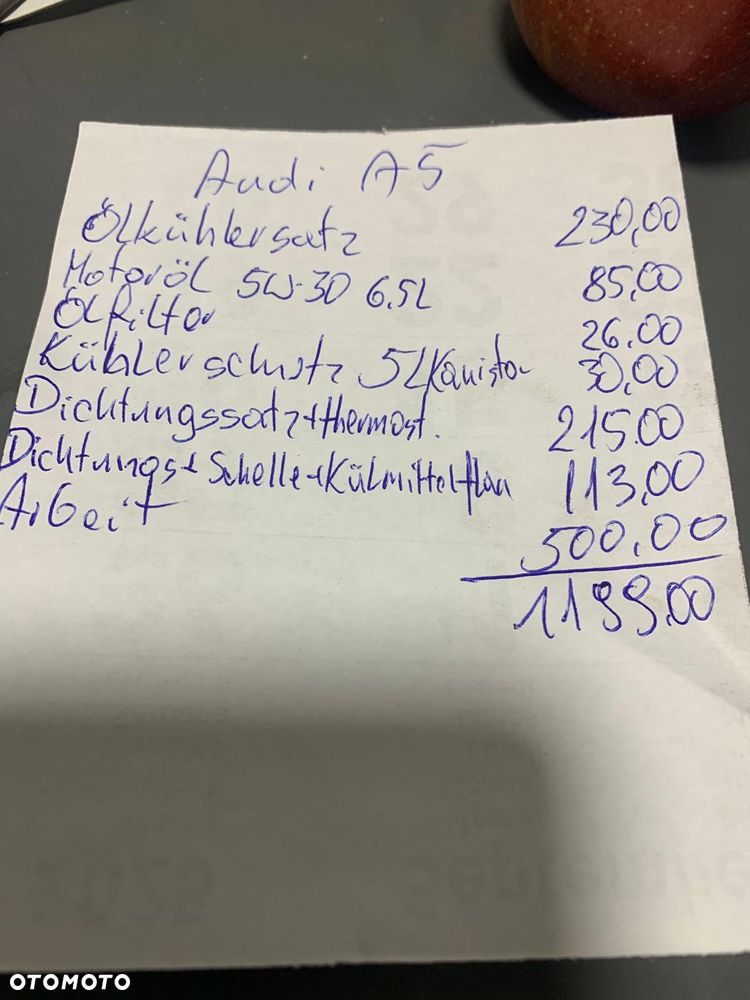 Audi A5
Ölkühlersatz 230,00
Motoröl 5W-30 6,5L 85,00
Ölfilter 26.00
Kühlerschutz 5LKanister 30,00
Dichtungssatz+thermost. 215.00
Dichtungs+Schelle+Külmittelflan 113,00
Arbeit 500,00
1199.00
2025
Septembe
OTOMOTO